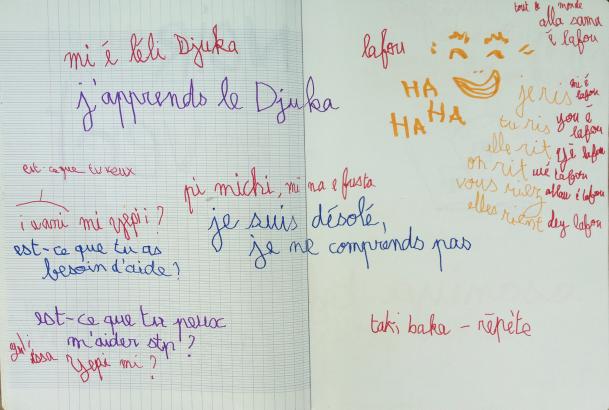 mi é léli Djuka
j'apprends le Djuka
est-ce que tu veux
i wani mi yepi ?
est-ce que tu as
besoin d'aide ?
pi michi, mi na e fusta
je suis désolé,
je ne comprends pas
est-ce que tu peux
m'aider stp ?
yepi mi ?
tout le monde
alla sama
é lafou
lafou
HA HA
HA HA
je ris mi é lafou
tu ris you é lafou
elle rit lafou
on rit lafou
vous riez é lafou
elles rient dey lafou
taki baka - répète